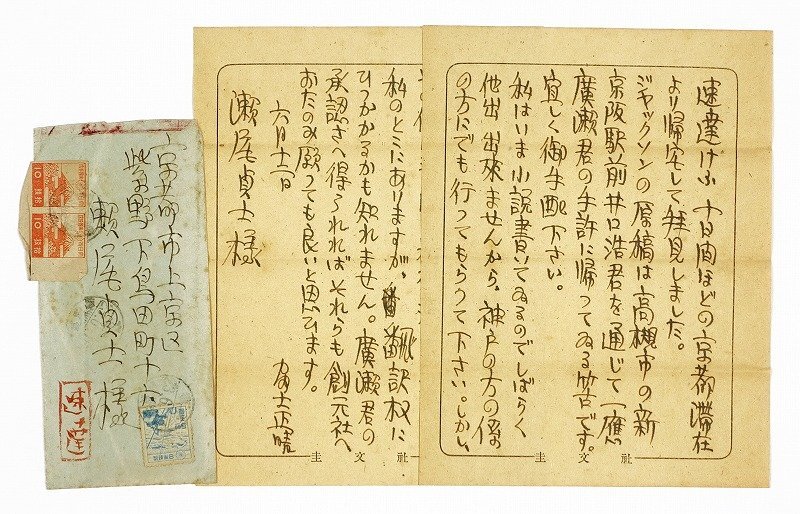 速達けふ 十日間ほどの京都滞在
より帰宅して拝見しました。
ジャックソンの原稿は高槻市の新
京阪駅前井口浩君を通じて一應
廣瀬君の手許に帰つてゐる筈です。
宜しく御手配下さい。
私はいま小説書いてゐるのでしばらく
他出 出來ませんから、神戸の方の係
の方にでも行つてもらうて下さい。しかし
圭文社
私のとこにありますが、飜訳权に
ひつかかるかも知れません。廣瀬君の
承認さへ得られればそれらも創元社へ
おたのみ願つても良いと思ひます。
六月十二日
富士正晴
瀬尾貞士様
圭文社
京都市上京区
紫野下鳥田町十六
瀬尾貞士様
速達
10
10